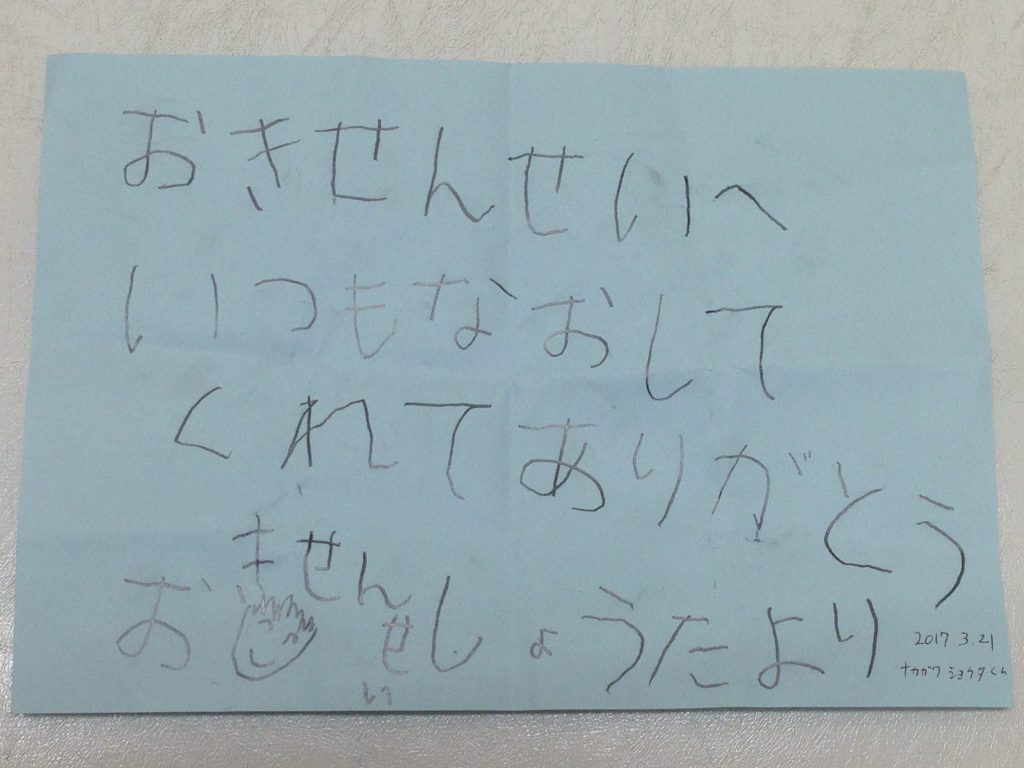 おきせんせいへ
いつもなおして
くれてありがとう
おきせんせい
しょうたより
2017 3.21
ナカガワ ショウタくん